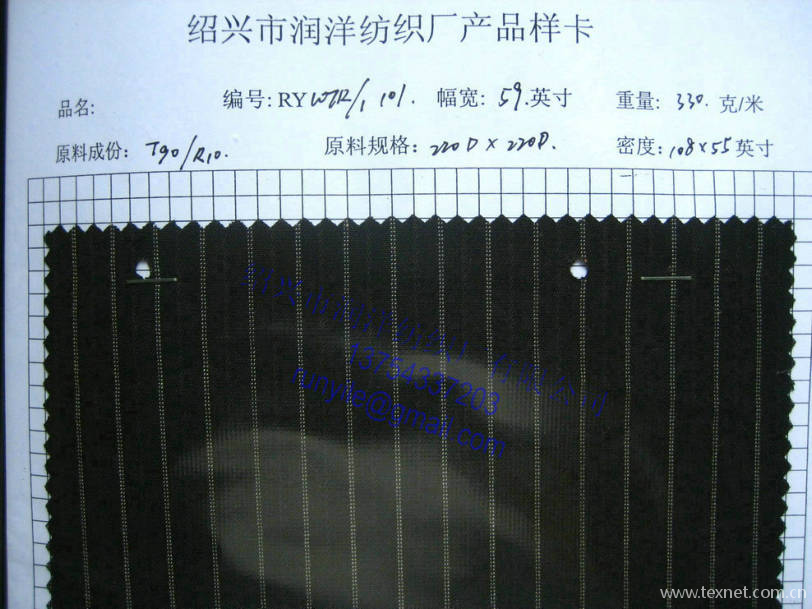 绍兴市润洋纺织厂产品样卡
品名: 编号: RY WTR/1 101. 幅宽: 59.英寸 重量: 330. 克/米
原料成份: T90/R10. 原料规格: 220D×220D. 密度: 108×55英寸
绍兴市润洋纺织厂有限公司
13754337203
runyile@gmail.com
www.texnet.com.cn